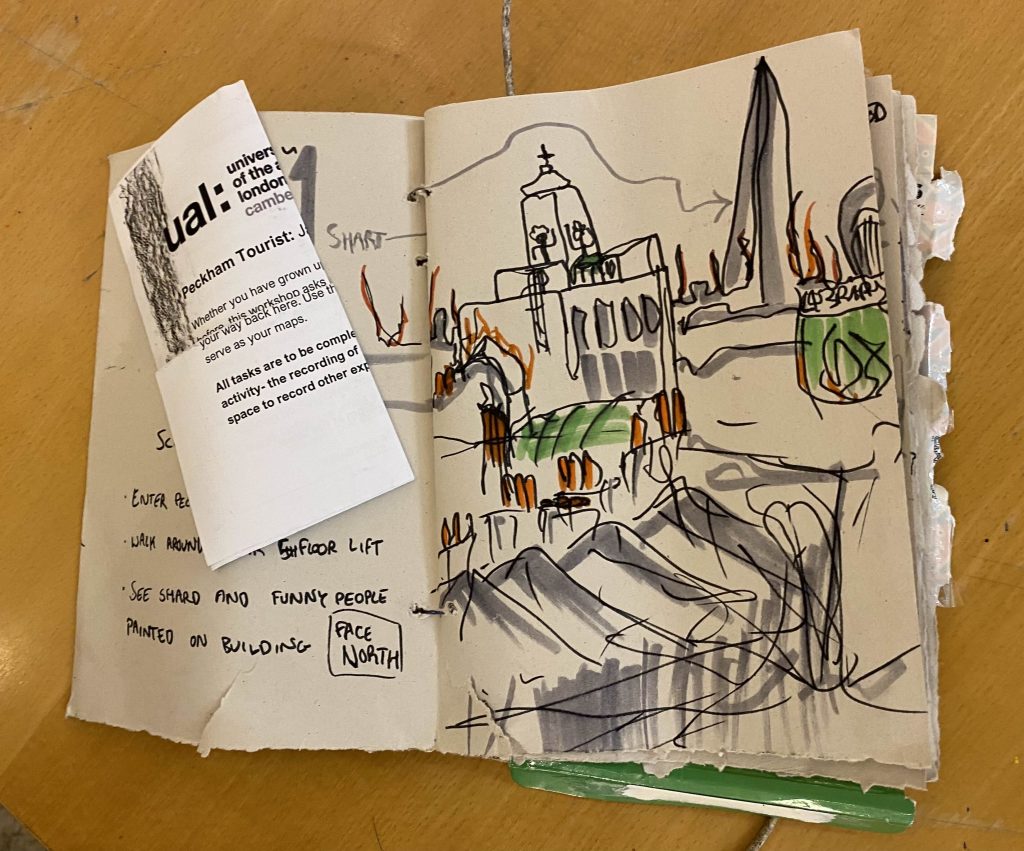 ual:
univers
of the a
london
cambe
Peckham Tourist: J
Whether you have grown u
before, this workshop asks
your way back here. Use th
serve as your maps.
All tasks are to be comple
activity- the recording of
space to record other exp
SHART
ENTER PEC
WALK AROUN FLOOR LIFT
SEE SHARD AND FUNNY PEOPLE
PAINTED ON BUILDING
FACE
NORTH